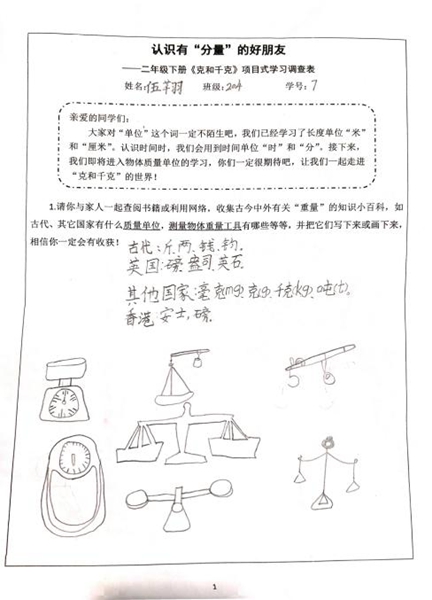 认识有“分量”的好朋友
——二年级下册《克和千克》项目式学习调查表
姓名:伍芊羽 班级:204 学号:7
亲爱的同学们：
大家对“单位”这个词一定不陌生吧，我们已经学习了长度单位“米”
和“厘米”。认识时间时，我们会用到时间单位“时”和“分”。接下来，
我们即将进入物体质量单位的学习，你们一定很期待吧，让我们一起走进
“克和千克”的世界！
1.请你与家人一起查阅书籍或利用网络，收集古今中外有关“重量”的知识小百科，如
古代、其它国家有什么质量单位，测量物体重量工具有哪些等等，并把它们写下来或画下来，
相信你一定会有收获！
古代:斤、两、钱、钧.
英国:磅.盎司.英石.
其他国家:毫克mg.克g.千克kg.吨(t).
香港:安士,磅.
1